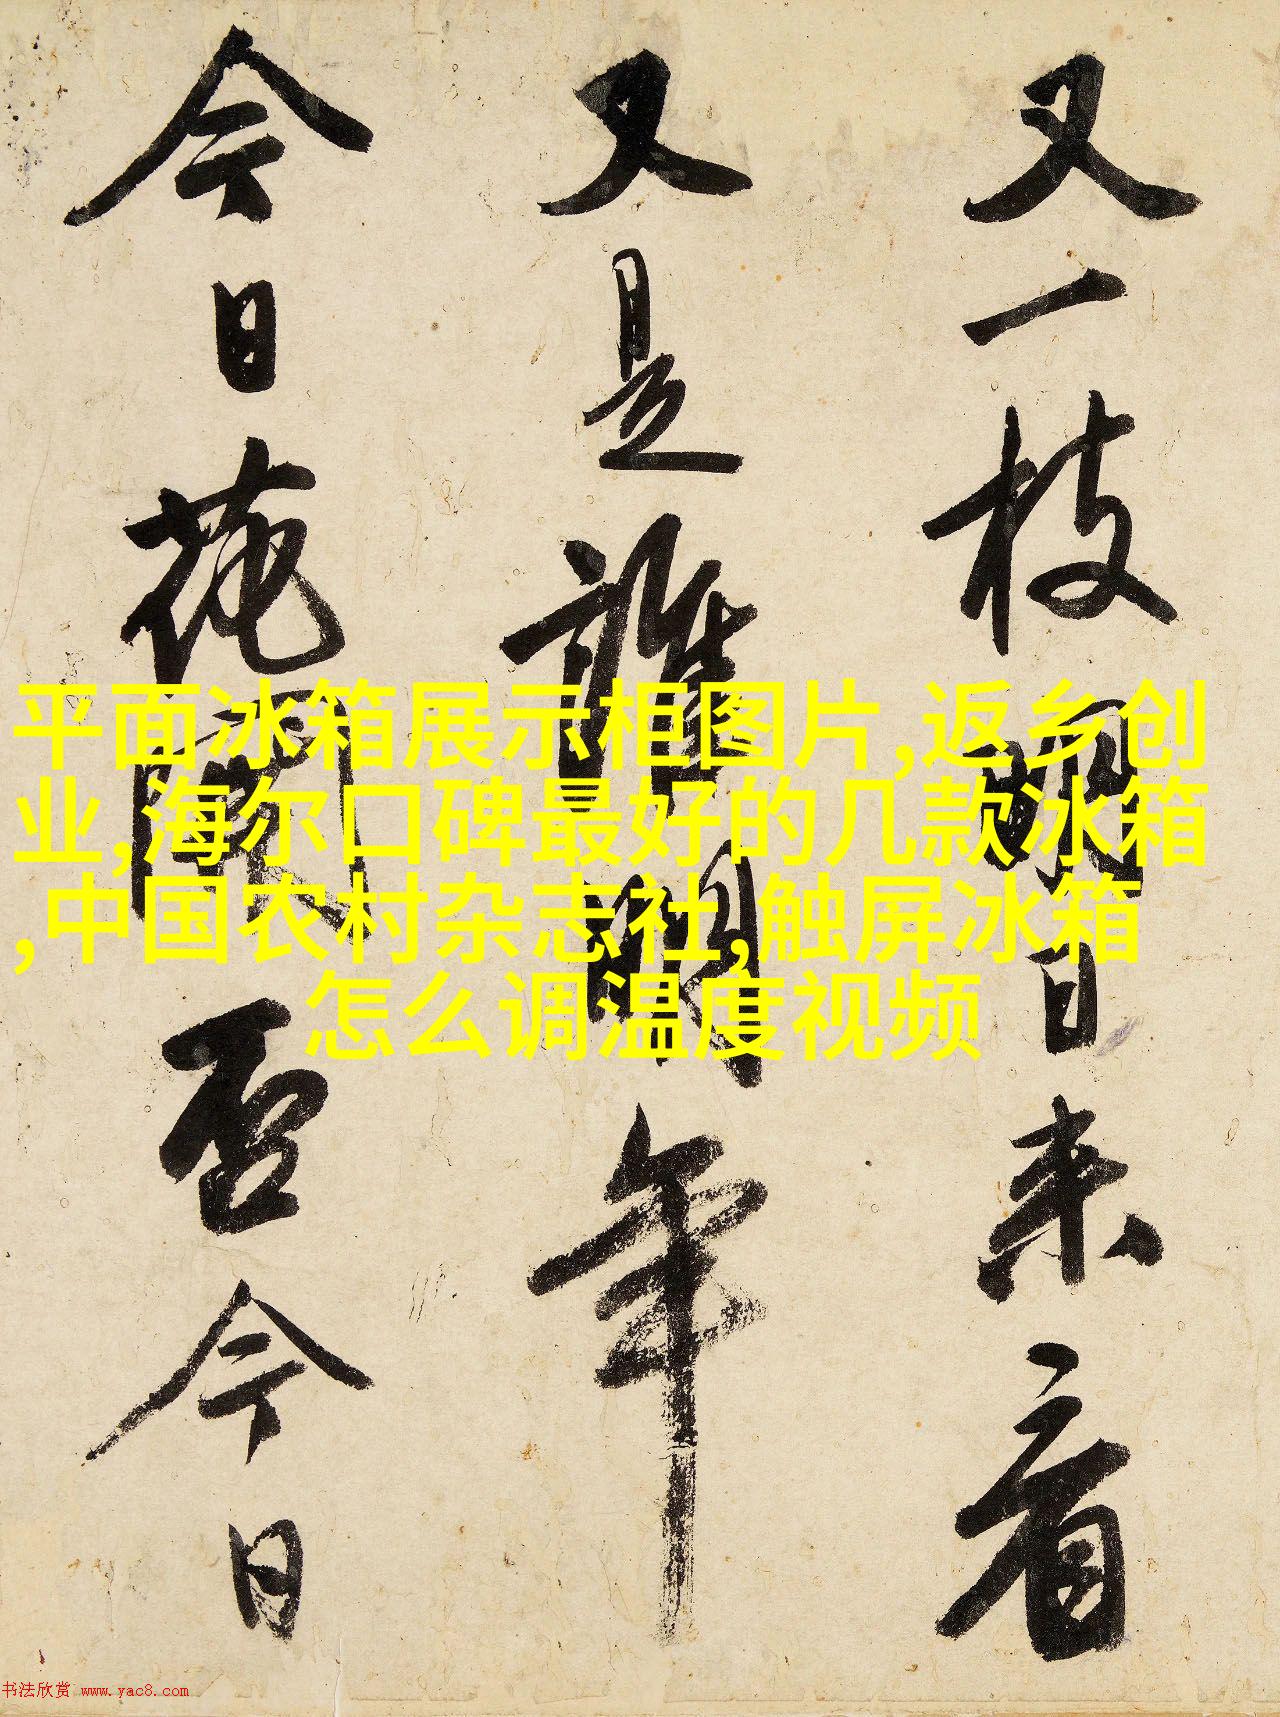 又一枝明日来看
又是誰明年
今日花開否今日
平面冰箱展示柜图片,返乡创
业,海尔口碑最好的几款冰箱
,中国农村杂志社,触屏冰箱
怎么调温度视频
书法欣赏 www.yac8.com